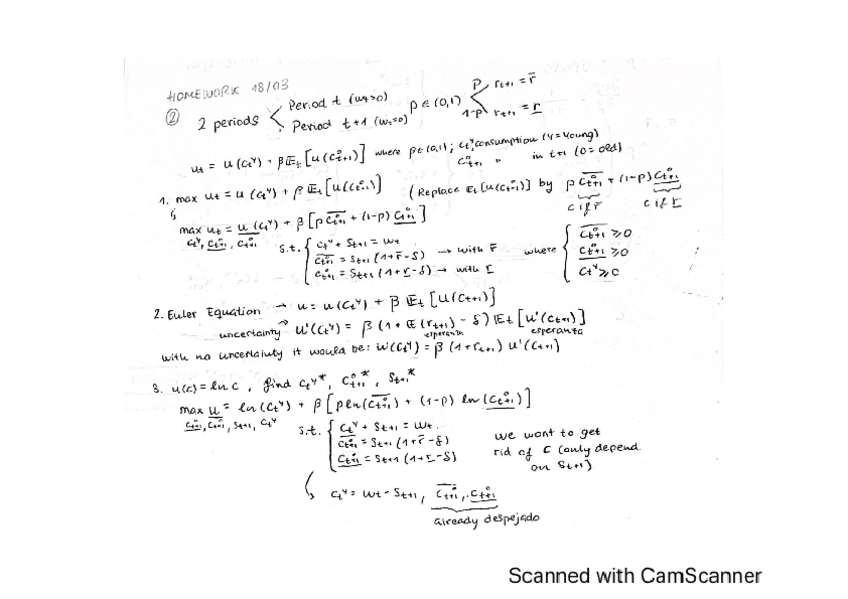 HOMEWORK 18/03
② 2 periods < Period t (wt>0) p ∈ (0,1) < p rt+1 = r̄
Period t+1 (wt=0) 1-p rt+1 = r
ut = u(Ct^y) + βEt[u(C°t+1)] where β∈(0,1); Ct^y consumption (y=young)
C°t+1 " in t+1 (0=old)
1. max ut = u(Ct^y) + βEt[u(C°t+1)] (Replace Et[u(C°t+1)] by p C̄°t+1 + (1-p) C°t+1
c if r̄ c if r
max ut = u(Ct^y) + β[p C̄°t+1 + (1-p) C°t+1]
Ct^y, C°t+1, C°t+1
s.t. { Ct^y + St+1 = wt
C̄°t+1 = St+1 (1+r̄-δ) → with r̄ where { C̄°t+1 ≥0
C°t+1 = St+1 (1+r-δ) → with r C°t+1 ≥0
Ct^y ≥0
2. Euler Equation → u = u(Ct^y) + βEt[u(Ct+1)]
uncertainty → u'(Ct^y) = β(1+E(rt+1)-δ)Et[u'(Ct+1)]
esperanza esperanza
with no uncertainty it would be: u'(Ct^y) = β(1+rt+1) u'(Ct+1)
3. u(c) = ln c, find Ct^y*, C°t+1*, St+1*
max u = ln(Ct^y) + β[p ln(C̄°t+1) + (1-p) ln(C°t+1)]
C°t+1, C̄°t+1, St+1, Ct^y
s.t. { Ct^y + St+1 = wt
C̄°t+1 = St+1 (1+r̄-δ) we want to get
C°t+1 = St+1 (1+r-δ) rid of C (only depend
on St+1)
Ct^y = wt - St+1, C̄°t+1, C°t+1
already despejado
Scanned with CamScanner